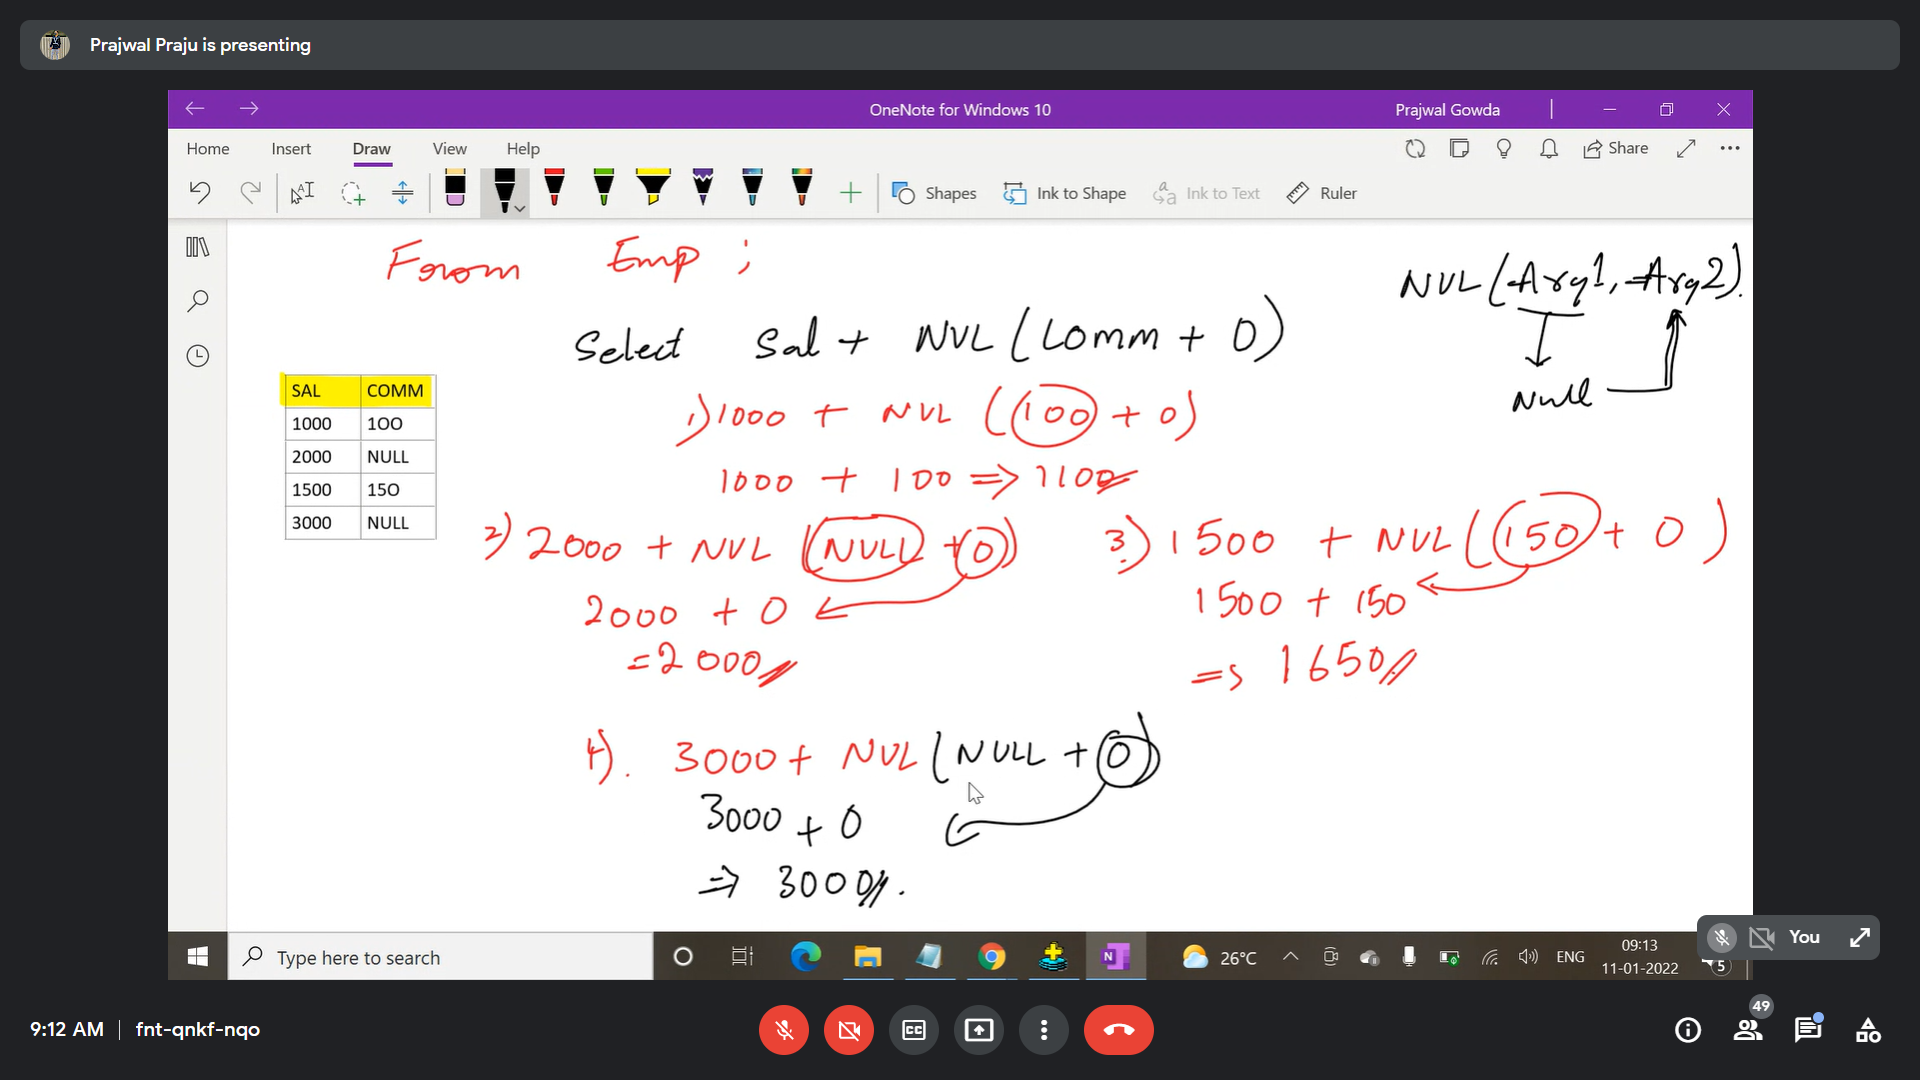 Prajwal Praju is presenting
OneNote for Windows 10
Prajwal Gowda
Home Insert Draw View Help
Share
Shapes Ink to Shape Ink to Text Ruler
From Emp ;
NVL (Arg1, Arg2).
Null
Select Sal + NVL (Comm + 0)
SAL COMM
1000 1OO
2000 NULL
1500 15O
3000 NULL
1) 1000 + NVL (100 + 0)
1000 + 100 => 1100
2) 2000 + NVL (NULL + 0)
2000 + 0
= 2000
3) 1500 + NVL (150 + 0)
1500 + 150
=> 1650
4). 3000 + NVL (NULL + 0)
3000 + 0
=> 3000.
Type here to search
26°C
ENG
09:13
11-01-2022
5
You
9:12 AM
fnt-qnkf-nqo
49